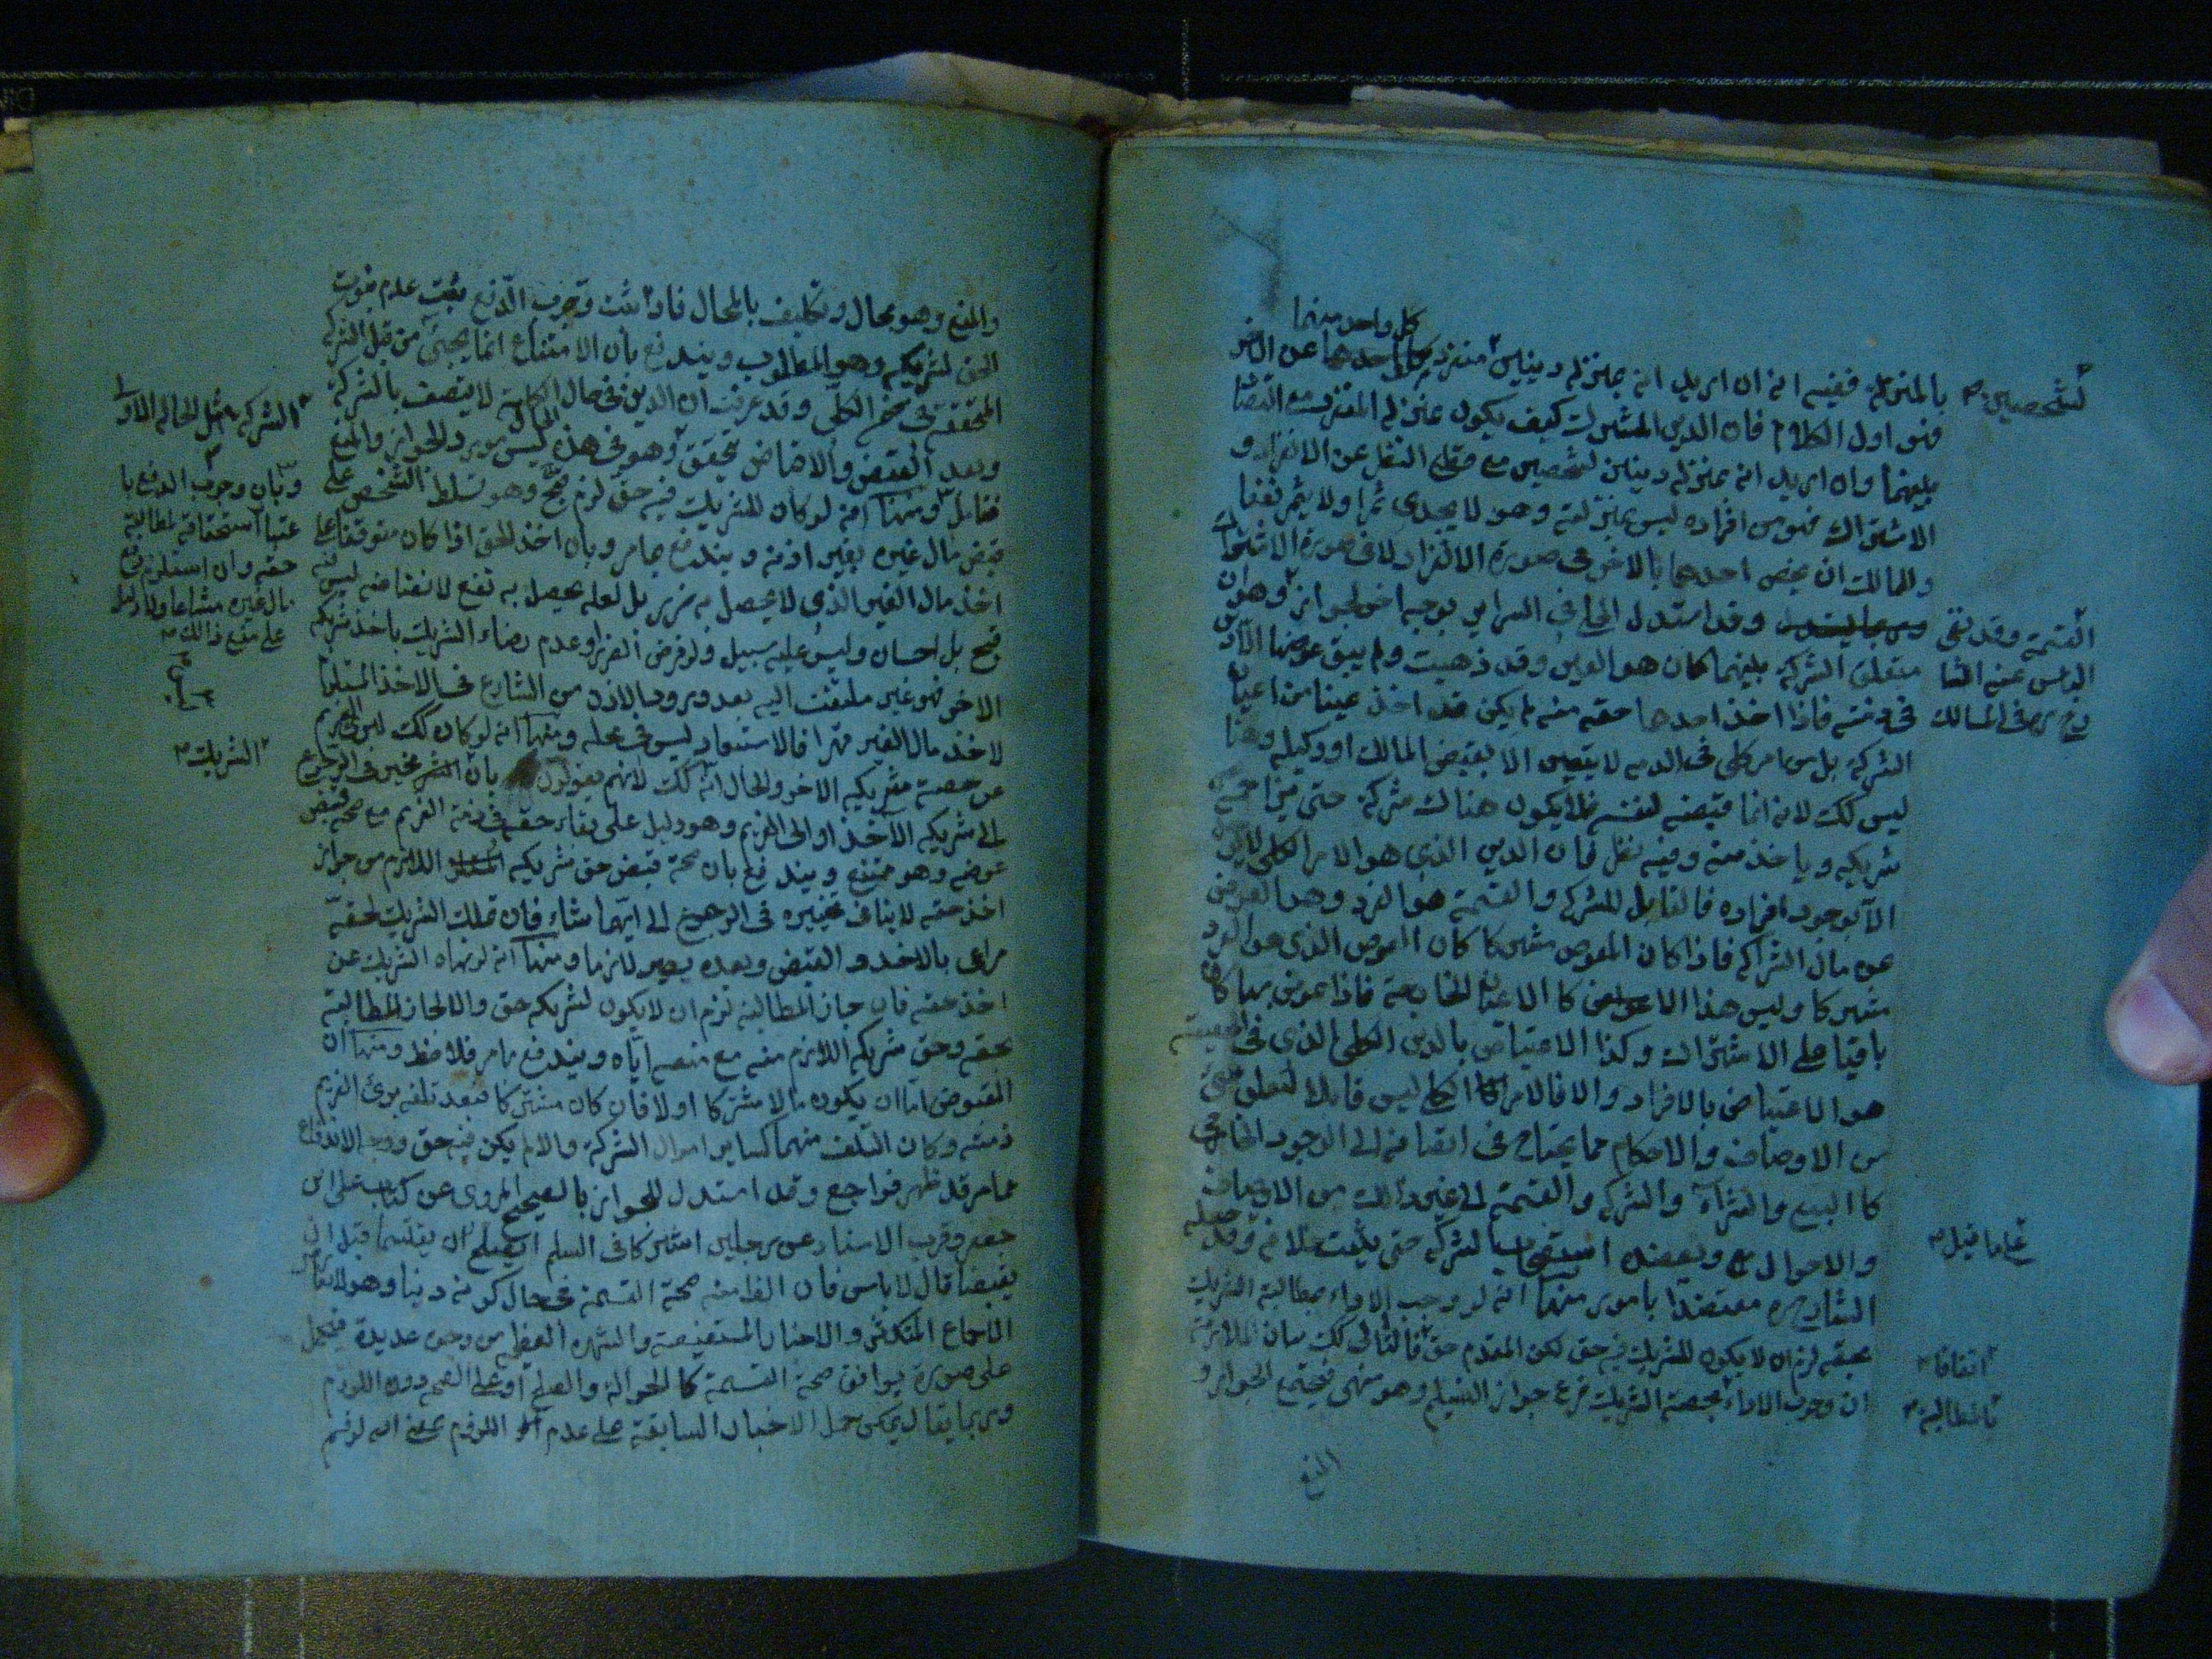 كل واحد منهما
بالمنزلة ففيه انه ان اريد انه بمنزلة دينين منفرد احدهما عن الاخر
فهو اول الكلام فان الدين المشترك كيف يكون بمنزلة المنفرد مع
بينهما وان اريد انه بمنزلة دينين لشخصين مع قطع النظر عن الانفراد و
الاشتراك فهو من افراده ليس بمنزلته وهو لا يجدى ثمرا ولا يثمر نفعا
وللمالك ان يخص احدهما بالاخر فى صورة الانفراد لا فى صورة الاشتراك
وقد استدل الحلى فى السرائر بوجه اخر للجواز وهو ان
متعلق الشركة بينهما كان هو العين وقد ذهبت ولم يبق عوضها الا دين
فى ذمته فاذا اخذ احدهما حقه منه لم يكن قد اخذ عينا من اعيان
الشركة بل من امر كلى فى الذمه لا يتعين الا بقبض المالك او وكيله وهنا
ليس كك لانه انما قبضه لنفسه فلا يكون هناك شركة حتى
شريكه وياخذ منه وفيه نظر فان الدين الذى هو الامر الكلى
الا بوجود افراده فالقابل للشركه والقسمة هو الفرد وهذا العوض
عن مال الشراكه فاذا كان المعوض مشتركا كان العوض الذى هو الفرد
مشتركا وليس هذا الا كالاعيان الخارجية فاذا عوض بها كان
باقيا على الاشتراك وكذا الاعتياض بالدين الكلى الذى فى الحقيقة
هو الاعتياض بالافراد والا فالامر الكلى ليس قابلا لتعلق شئ
من الاوصاف والاحكام مما يحتاج فى اتصافه الى الوجود الخارجى
كالبيع والشراء والشركه والقسمة الى غير ذلك من الاوصاف
والاحوال ويعضده استصحاب الشركه حتى يثبت خلافه وقد جعله
الشارح ره معتضدا بامور منها انه لو وجب الاداء بمطالبة الشريك
بحقه لزم ان لا يكون للشريك فيه حق لكن المقدم حق فالتالى كك بيان الملازمة
ان وجوب الاداء بحصة الشريك فرع جواز التسليم وهو منهى فيجتمع الجواز و
المنع
لشخصين
القسمة وقد نفى
الباس عنه الشا
رح ره فى المسالك
على ما قيل
اتفاقا
بالمطالبة
والمنع وهو محال وتكليف بالمحال فاذا ثبت وجوب الدفع يثبت عدم ثبوت
الحق لشريكه وهو المطلوب ويندفع بان الامتناع انما يجئ من قبل الشركة
المتحققة فى ضمن الكلى وقد عرفت ان الدين فى حال الكلية لا يتصف بالشركه
وبعد القبض والاقباض تحقق وهو فى هذه الحال ليس مورد الجواز والمنع
فتامل ومنها انه لو كان للشريك فيه حق لزم قبح وهو تسلط الشخص على
قبض مال غيره بغير اذنه ويندفع بما مر وبان اخذ الحق اذا كان متوقفا على
اخذ مال الغير الذى لا يحصل به ضرر بل لعله يحصل به نفع لانقباضه ليس فيه
قبح بل احسان وليس عليه سبيل ولو فرض الضرر او عدم رضاء الشريك باخذ شريكه
الاخر فهو غير ملتفت اليه بعد ورود الاذن من الشارع فى الاخذ المستلزم
لاخذ مال الغير قهرا فالاستبعاد ليس فى محله ومنها انه لو كان كك
عن حصة شريكه الاخر والحال انه كك لانهم يقولون بان مخير فى الرجوع
الى شريكه الاخذ او الى الغريم وهو دليل على بقاء حقه فى ذمة الغريم مع صحة قبض
عوضه وهو ممتنع ويندفع بان صحة قبض حق شريكه اللازم من جواز
اخذ حقه لا ينافى تخييره فى الرجوع الى ايهما شاء فان تملك الشريك لحقه
مراعى بالاخذ والقبض وبعده يصير لازما ومنها انه لو نهاه الشريك عن
اخذ حقه فان جاز المطالبة لزم ان لا يكون لشريكه حق والا لجاز المطالبة
بحقه وحق شريكه اللازم منه مع منعه اياه ويندفع بما مر فلاحظ ومنها ان
المقبوض اما ان يكون مالا مشتركا او لا فان كان مشتركا فبعد تلفه برئ الغريم
ذمته وكان التلف منهما كساير اموال الشركة والا لم يكن فيه حق ووجه الاندفاع
مما مر قد ظهر فراجع وقد استدل للجواز بالصحيح المروى عن كتاب على بن
جعفر وقرب الاسناد عن رجلين اشتركا فى السلم ايصلح ان يقتسما قبل ان
يقبضا قال لا باس فان الظ منه صحة القسمة فى حال كونه دينا وهو
الاجماع المتكثر والاخبار المستفيضة والشهره العظيمة من وجوه عديدة فيحمل
على صورة يوافق صحة القسمة كالحوالة والصلح او على الصحه دون اللزوم
وربما يقال يمكن حمل الاخبار السابقة على عدم اللزوم بمعنى انه لو لم
الشركة مثل الحالة الاولى
وبان وجوب الدفع با
عتبار استحقاقه لمطالبة
حقه وان استلزم دفع
مال غيره مشاعا ولا دليل
على منع ذلك
الشريك